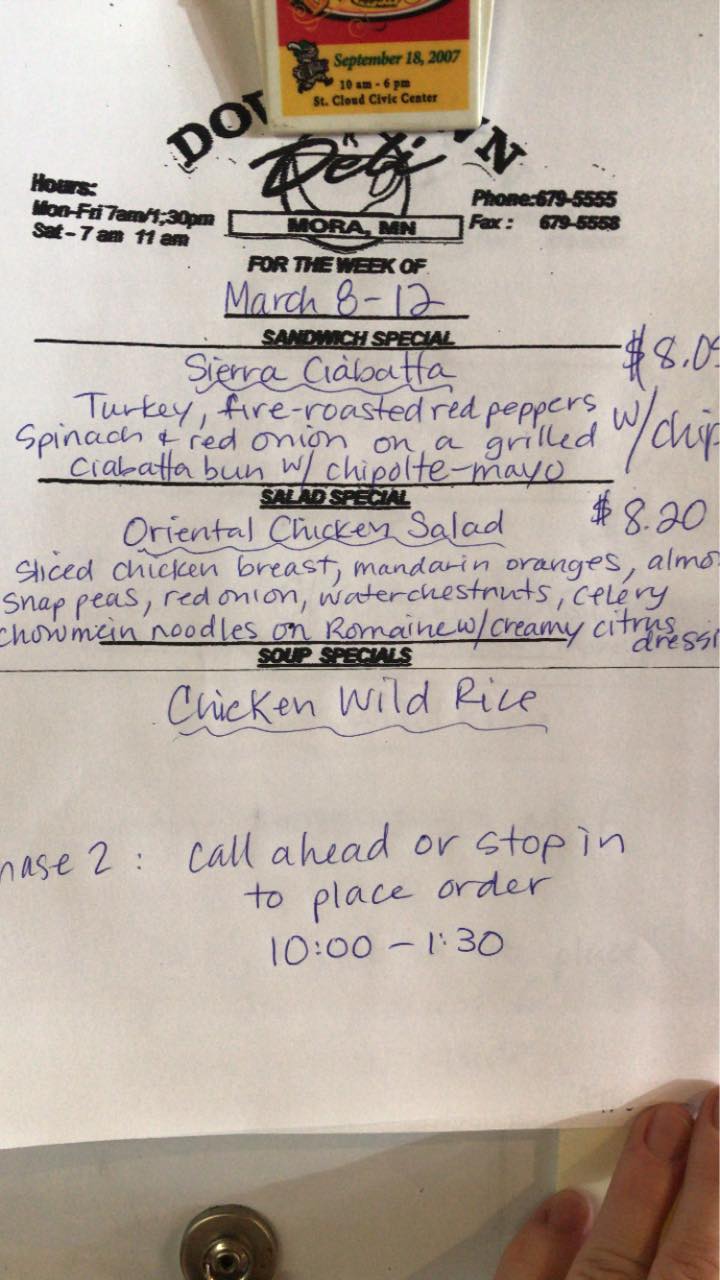 September 18, 2007
10 am - 6 pm
St. Cloud Civic Center
Deli
Hours:
Mon-Fri 7am/1;30pm
Sat - 7 am 11 am
Phone:679-5555
Fax : 679-5558
MORA, MN
FOR THE WEEK OF
March 8-12
SANDWICH SPECIAL
Sierra Ciabatta
$8.0
Turkey, fire-roasted red peppers
Spinach & red onion on a grilled
w/chip
Ciabatta bun w/ chipolte-mayo
SALAD SPECIAL
Oriental Chicken Salad
$8.20
Sliced chicken breast, mandarin oranges, almo
Snap peas, red onion, waterchestnuts, celery
chowmein noodles on Romaine w/creamy citrus
dressi
SOUP SPECIALS
Chicken Wild Rice
hase 2 : call ahead or stop in
to place order
10:00 - 1:30